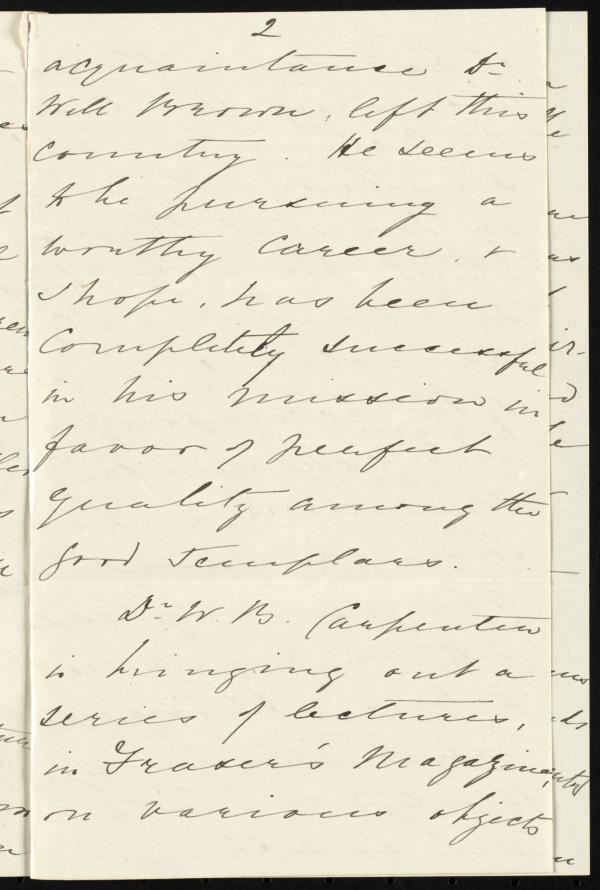 2
acquaintance Dr.
Will Brown, left this
country. He seems
to be pursuing a
worthy career, &
I hope, has been
completely successful
in his mission in
favor of perfect
equality among the
Good Templars.
Dr. W. B. Carpenter
is bringing out a
series of lectures,
in Fraser's Magazine,
on various objects